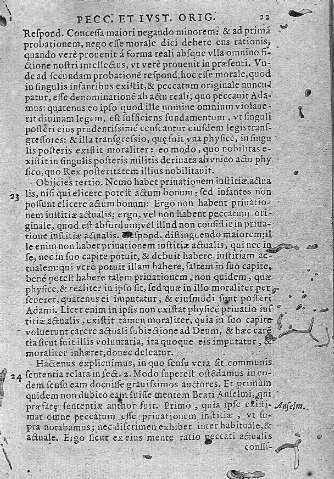 PECC. ET IVST. ORIG. 22
Respond. Concessa maiori negando minorem: & ad primã
probationem, nego esse morale dici debere ens rationis,
quando verè prouenit à forma reali absque vlla omnino fi-
ctione nostri intellectus, vt verè prouenit in præsenti. Vn-
de ad secundam probationẽ respond. hoc esse morale, quod
in singulis infantibus existit, & peccatum originale nuncu
patur, esse denominationẽ ab actu reali, quo peccauit Ada-
mus: quatenus eo ipso quod ille nomine omnium violaue-
rit diuinam legem, est sufficiens fundamentum, vt singuli
posteri eius prudentissimè censeantur eiusdem legis trans-
gressores: & illa transgressio, quæ fuit vna physicè, in singu
lis posteris existit moraliter: eo modo, quo nobilitas e-
xistit in singulis posteris militis deriuata ab vnico actu phy
sico, quo Rex posteritatem illius nobilitauit.
23 Obijcies tertio. Nemo habet priuationem iustitiæ actua
lis, nisi qui elicere potest actum bonum: sed infantes non
possunt elicere actum bonum: Ergo non habent priuatio-
nem iustitiæ actualis; ergo, vel non habent peccatum ori-
ginale, quod est absurdum, vel illud non consistit in priua-
tione iustitiæ actualis. Respond. disting. endo maiorem; il
le enim non habet priuationem iustitiæ actualis, qui nec in
se, nec in suo capite potuit, & debuit habere iustitiam ac-
tualem: qui verò potuit illam habere, saltem in suo capite,
benè potest habere talem priuationem, non quidem, quæ
physicè, & realiter in ipso sit, sed quæ in illo moraliter per-
seueret, quatenus ei imputatur, & eiusmodi sunt posteri
Adami. Licet enim in ipsis non existat physicè priuatio ius
titiæ actualis, existit tamen moraliter, quia in suo capite
voluerunt carere actuali subiectione ad Deum, & hæc carẽ
tia sicut fuit illis voluntaria, ita quoque eis imputatur, &
moraliter inhæret, donec deleatur.
24 Hactenus explicuimus, in quo sensu vera sit communis
sententia relata in sect. 2. Modo superest ostẽdamus in eo-
dem sensu eam docuisse grauissimos auctores. Et primùm
quidem non dubito eam fuisse mentem Beati Anselmi, qui
præfatæ sententiæ author fuit. Primo, quia ipse existi- Anselm.
mat omne peccatum esse priuationem iustitiæ, vt su-
pra notabamus; nec discrimen exhibet inter habituale, &
actuale. Ergo sicut ex eius mente ratio peccati actualis
consis-